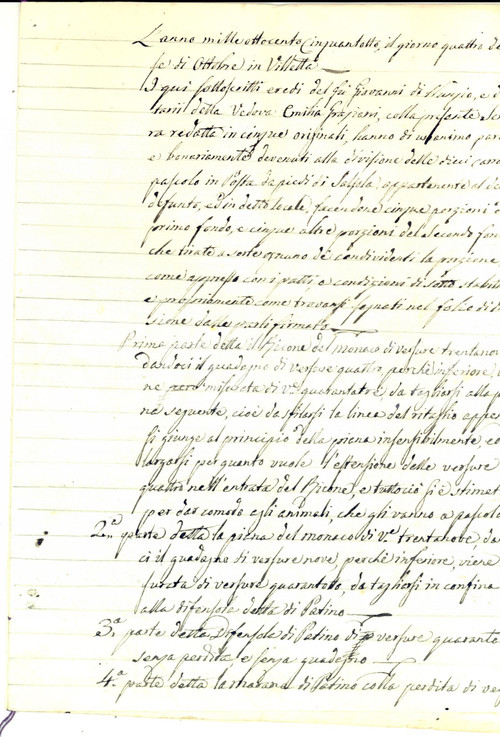 L'anno mille ottocento cinquantotto, il giorno quattro de
se di Ottobre in Villetta
I qui sottoscritti eredi del fu Giovanni di
tarii della Vedova Emilia Graziani, colla presente Sc
ra redatta in cinque originali, hanno di unanimo par
e bonariamente devenuti alla divisione delle dieci
pascolo in Posta da piedi di Salsola, appartenente al
defunto, ed in detto locale, facendone cinque porzioni
primo fondo, e cinque altre porzioni del Secondo fon
che tirate a sorte ognuno de' condividenti la porzione
come appresso con i patti e condizioni di sotto stabili
e propriamente come trovansi segnati nel folio di
sione dalle parti firmato
Prima parte detta il Riccone del monaco di versure trentanov
dandoci il guadagno di versure quattro, perchè inferiore,
ne però misurata di v.e quarantatrè, da tagliarsi alla
na seguente, cioè da filarsi la linea del ritaglio appe
si giunge al principio della piana insensibilmente,
largarsi per quanto vuole l'estensione delle versure
quattro nell'entrata del Riccone, e tuttociò si è stimat
per dar comodo agli animali, che gli vanno a pascola
2.a parte detta la piana del monaco di v.e trentanove, da
ci il guadagno di versure nove, perchè inferiore, viene
surata di versure quarantotto, da tagliarsi in confina
alla difensola detta di Patino
3.a parte detta Difensola di Patino di versure quaranta
senza perdita, e senza guadagno
4.a parte detta la marana di Patino colla perdita di ve